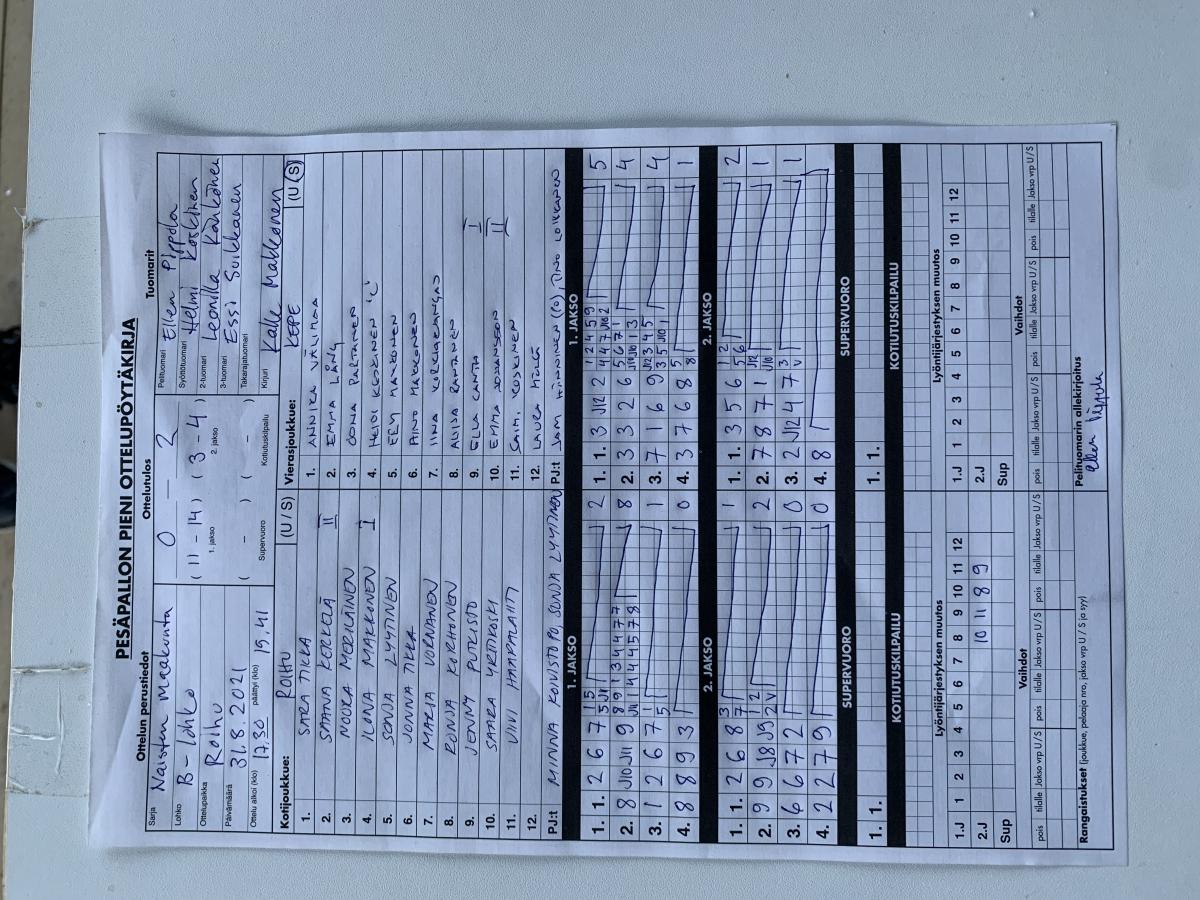 PESÄPALLON PIENI OTTELUPÖYTÄKIRJA
Ottelun perustiedot
Ottelutulos
Tuomarit
Sarja Naisten maakunta
Lohko B-lohko
Ottelupaikka Roihu
Päivämäärä 31.8.2021
Ottelu alkoi (klo) 17.30 päättyi (klo) 19.41
0 - 2
( 11 - 14 ) ( 3 - 4 )
1. jakso 2. jakso
( - ) ( - )
Supervuoro Kotiutuskilpailu
Pelituomari Ellen Piippola
Syöttötuomari Helmi Koskinen
2-tuomari Leonilla Kärkönen
3-tuomari Essi Suikkanen
Takarajatuomari
Kirjuri Kalle Makkonen
Kotijoukkue: ROIHU (U / S)
1. SARA TIKKA
2. SAANA KERKELÄ II
3. NOORA MERILÄINEN
4. ILONA MAKKONEN I
5. SONJA LYYTINEN
6. JONNA TIKKA
7. MARIA VORNANEN
8. RONJA KORHONEN
9. JENNY PURSTO
10. SAARA YRTIKOSKI
11. VIIVI HAAPALAHTI
12.
PJ:t MINNA KOIVISTO, SONJA LYYTINEN
Vierasjoukkue: KEPE (U / S)
1. ANNIKA VÄLIMAA
2. EMMA LÅNG
3. OONA PARTANEN
4. HEIDI KESKINEN "C"
5. ELVI MAKKONEN
6. AINO MAKKONEN
7. IINA KORKEAKANGAS
8. ALIISA RANTANEN
9. ELLA CANTH I
10. EMMA JOHANSSON II
11. SAIMI KOSKINEN
12. LAURA MÖLSÄ
PJ:t JAMI HÄNNINEN (O), AINO LOIKKANEN
1. JAKSO
1. JAKSO
1. 1. 2 6 7 1 5 5 J11 2
2. 8 J10 J11 9 8 9 1 3 4 4 7 7 J11 1 4 4 5 7 8 8
3. 1 2 6 7 1 5 1
4. 8 8 9 3 0
1. 1. 3 J12 2 1 2 4 5 9 4 4 7 J10 2 5
2. 3 3 2 6 5 6 7 1 J10 J10 3 4
3. 7 1 6 9 J12 3 4 5 3 5 J10 1 4
4. 3 7 6 8 5 8 1
2. JAKSO
2. JAKSO
1. 1. 2 6 8 3 7 1
2. 9 9 J8 J9 1 2 2 V 2
3. 6 6 7 2 0
4. 2 2 7 9 0
1. 1. 3 5 6 1 2 5 6 2
2. 7 8 7 1 J12 J10 1
3. 2 J12 4 7 3 V 1
4. 8
SUPERVUORO
SUPERVUORO
1. 1.
1. 1.
KOTIUTUSKILPAILU
KOTIUTUSKILPAILU
Lyöntijärjestyksen muutos
Lyöntijärjestyksen muutos
1.J 1 2 3 4 5 6 7 8 9 10 11 12
2.J 10 11 8 9
Sup
1.J 1 2 3 4 5 6 7 8 9 10 11 12
2.J
Sup
Vaihdot
Vaihdot
pois tilalle Jakso vrp U / S pois tilalle Jakso vrp U / S pois tilalle Jakso vrp U / S
pois tilalle Jakso vrp U / S pois tilalle Jakso vrp U / S
Rangaistukset (joukkue, pelaaja nro, jakso vrp U / S ja syy)
Pelituomarin allekirjoitus
Ellen Piippola